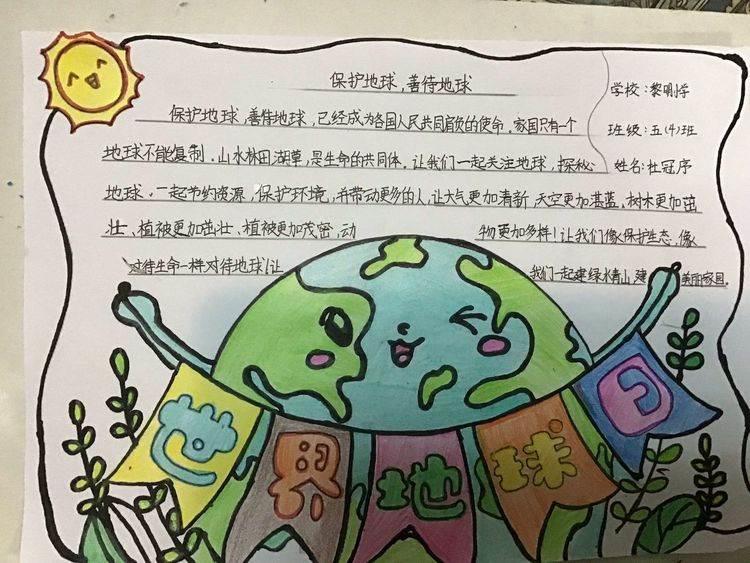 保护地球,善待地球
学校:黎明小学
班级:五(4)班
姓名:杜冠序
保护地球,善待地球,已经成为各国人民共同肩负的使命.家园只有一个
地球不能复制.山水林田湖草,是生命的共同体.让我们一起关注地球,探秘
地球.一起节约资源,保护环境,并带动更多的人,让大气更加清新,天空更加湛蓝、树木更加茁
壮、植被更加茁壮、植被更加茂密,动物更加多样!让我们像保护生态,像
对待生命一样对待地球!让我们一起建绿水青山,建美丽家园.
世界地球日